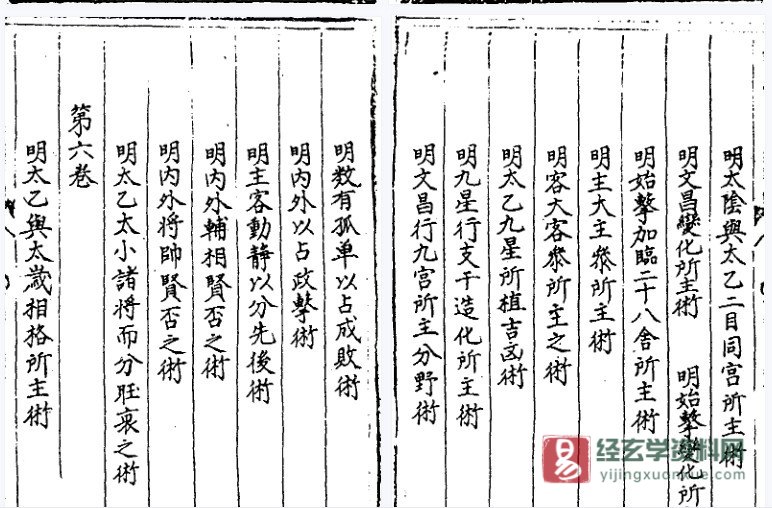 明太陰與太乙二目同宮所主術
明文昌變化所主術 明始擊變化所
明始擊加臨二十八舍所主術
明主大主參所主術
明客大客參所主之術
明太乙九星所植吉凶術
明九星行支干造化所主術
明文昌行九宮所主分野術
明数有孤单以占成敗術
明內外以占政擊術
明主客動静以分先後術
明內外輔相賢否之術
明內外将帥賢否之術
明太乙太小諸将而分旺衰之術
第六卷
明太乙與太歲相格所主術
易
经玄学资料网
yijingxuonxue.com